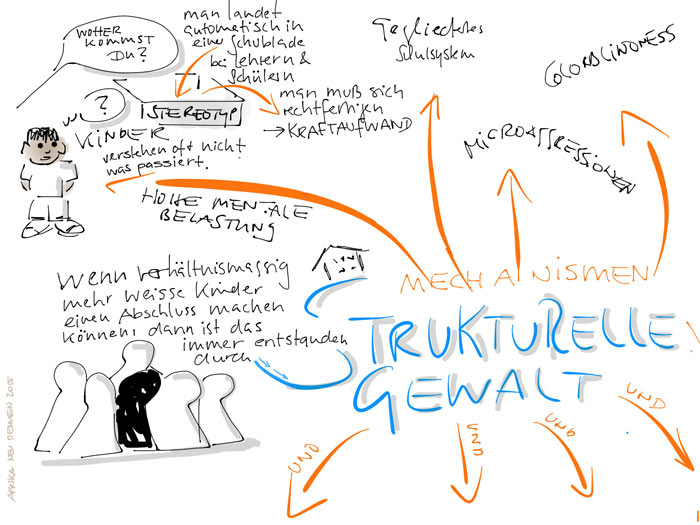 WOHER
KOMMST
DU?
man landet
automatisch in
eine Schublade
bei Lehrern &
Schülern
STEREOTYP
man muß sich
rechtfertigen
→ KRAFTAUFWAND
?
KINDER
verstehen oft nicht
was passiert.
HOHE MENTALE
BELASTUNG
Gegliedertes
Schulsystem
COLORBLINDNESS
MICROAGGRESSIONEN
MECHANISMEN
STRUKTURELLE
GEWALT
Wenn verhältnismassig
mehr weisse Kinder
einen Abschluss machen
können, dann ist das
immer entstanden
durch
UND
UND
UND
UND
AFRIKA NEU DENKEN 2015